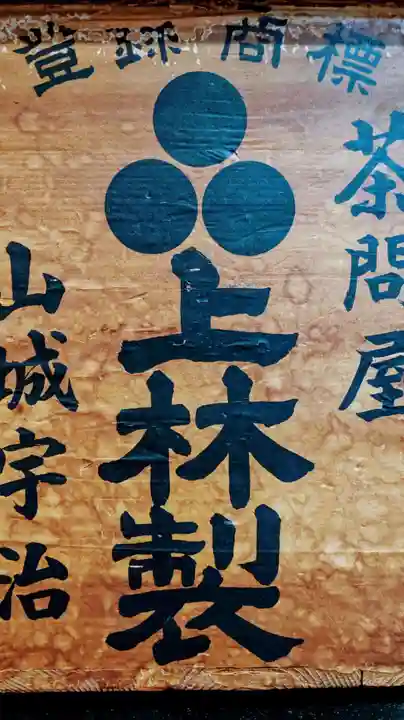 登録商標
茶問屋
上林製
山城宇治